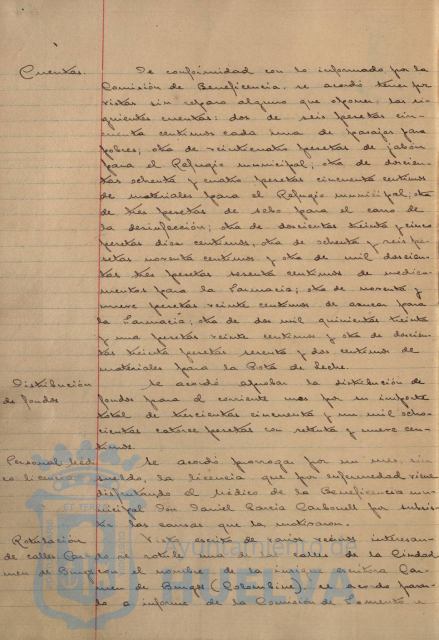 Cuentas. De conformidad con lo informado por la
Comisión de Beneficencia, se acordó tener pre
vistas sin reparo alguno que oponer, las si-
guientes cuentas: dos de seis pesetas cin-
cuenta centimos cada una de parajes para
pobres; otra de veinticuatro pesetas de jabón
para el Refugio municipal; otra de doscien-
tas ochenta y cuatro pesetas cincuenta centimos
de materiales para el Refugio municipal; otra
de tres pesetas de sebo para el carro de
la desinfección; otra de doscientas treinta y cinco
pesetas diez centimos, otra de ochenta y seis pe-
setas noventa centimos y otra de mil doscien-
tas tres pesetas sesenta centimos de medica-
mentos para la Farmacia; otra de noventa y
nueve pesetas veinte centimos de azucar para
la Farmacia; otra de dos mil quinientas treinta
y una pesetas veinte centimos y otra de doscien-
tas treinta pesetas sesenta y dos centimos de
materiales para la Gota de leche.
Distribución Se acordó aprobar la distribución de
de fondos fondos para el corriente mes por su importe
total de trescientas cincuenta y un mil ocho-
cientas catorce pesetas con setenta y nueve cen-
timos.
Personal médi Se acordó prorrogar por un mes, sin
co. licencia sueldo, la licencia que por enfermedad viene
disfrutando el Médico de la Beneficencia mu-
nicipal Don Daniel Garcia Carbonell por subsis-
tir las causas que la motivaron.
Rotulación Visto escrito de varios vecinos interesan-
de calles Car do se rotule una de las calles de la Ciudad
men de Burgos con el nombre de la insigne escritora Car-
men de Burgos (Colombine), se acordó pasar-
lo a informe de la Comisión de Fomento e
Ayuntamiento de
HUELVA